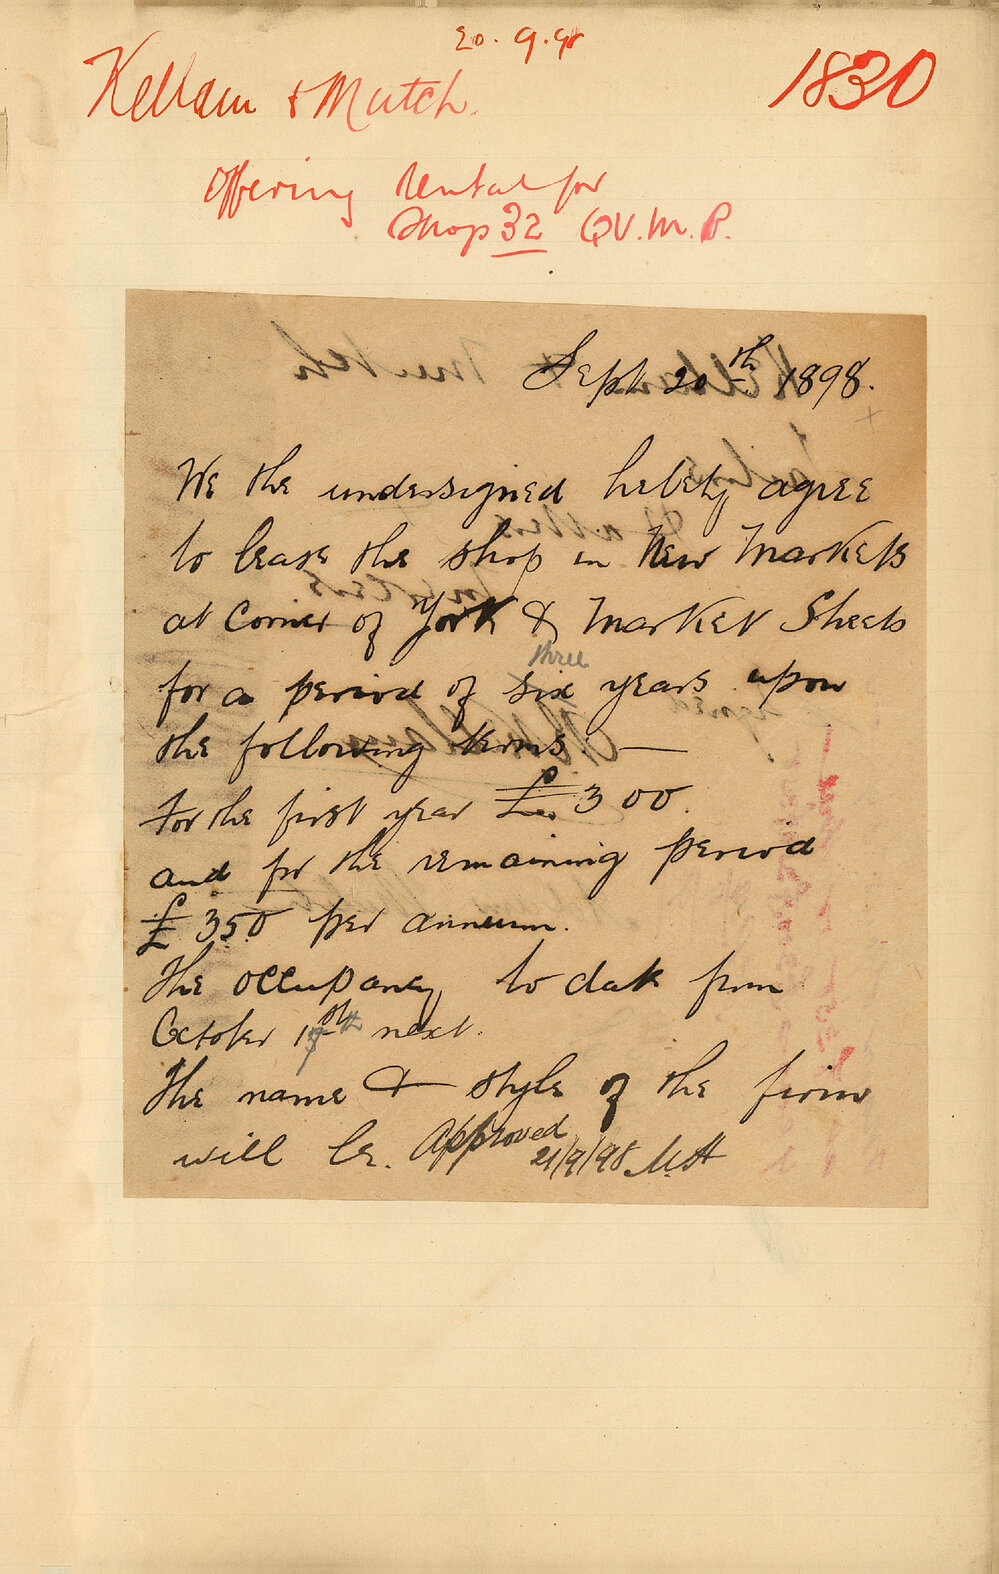 20.9.98
Kellam & Mutch.
1830
Offering rental for
Shop 32 QV.M.B.
Sept 20th 1898.
We the undersigned hereby agree
to lease the shop in New Markets
at Corner of York & Market Sheets
three
for a period of six years upon
the following terms :—
For the first year £300.
and for the remaining period
£350 per annum.
The occupancy to date from
October 17th next.
The name & style of the firm
will be. Approved
21/9/98